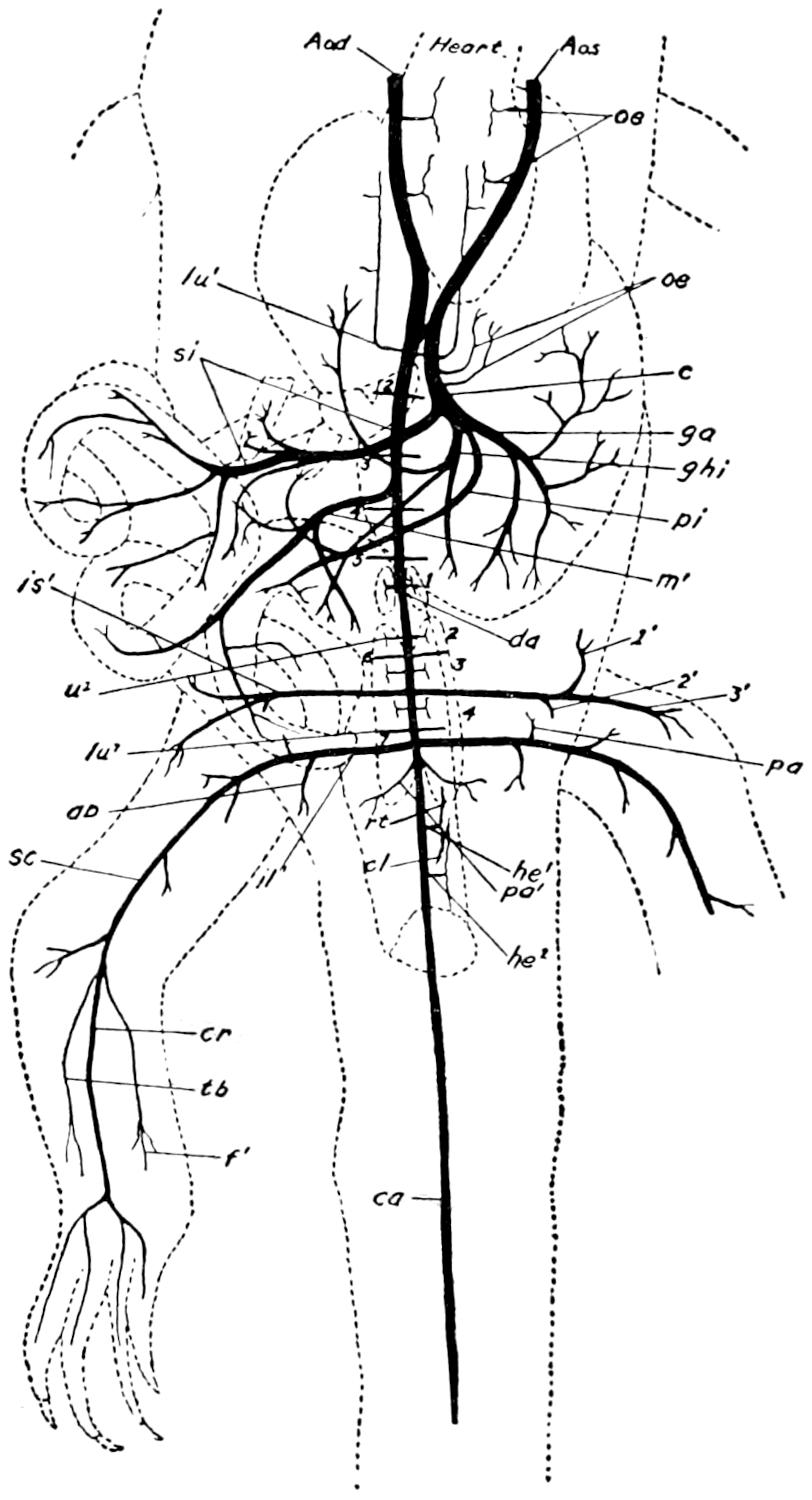 Aod Heart Aos
oe
lu' oe
si
2 c
ga
3 ghi
4 pi
5 m'
is' 1
da
2 1'
6 3
u² 2' 3'
4
lu² pa
ab
rt
sc cl he'
il' pa'
he²
cr
tb
f'
ca